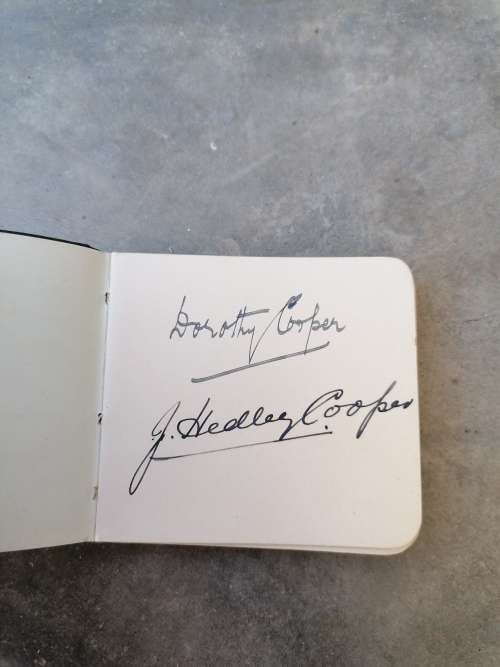 Dorothy Cooper
J. Hedley Cooper